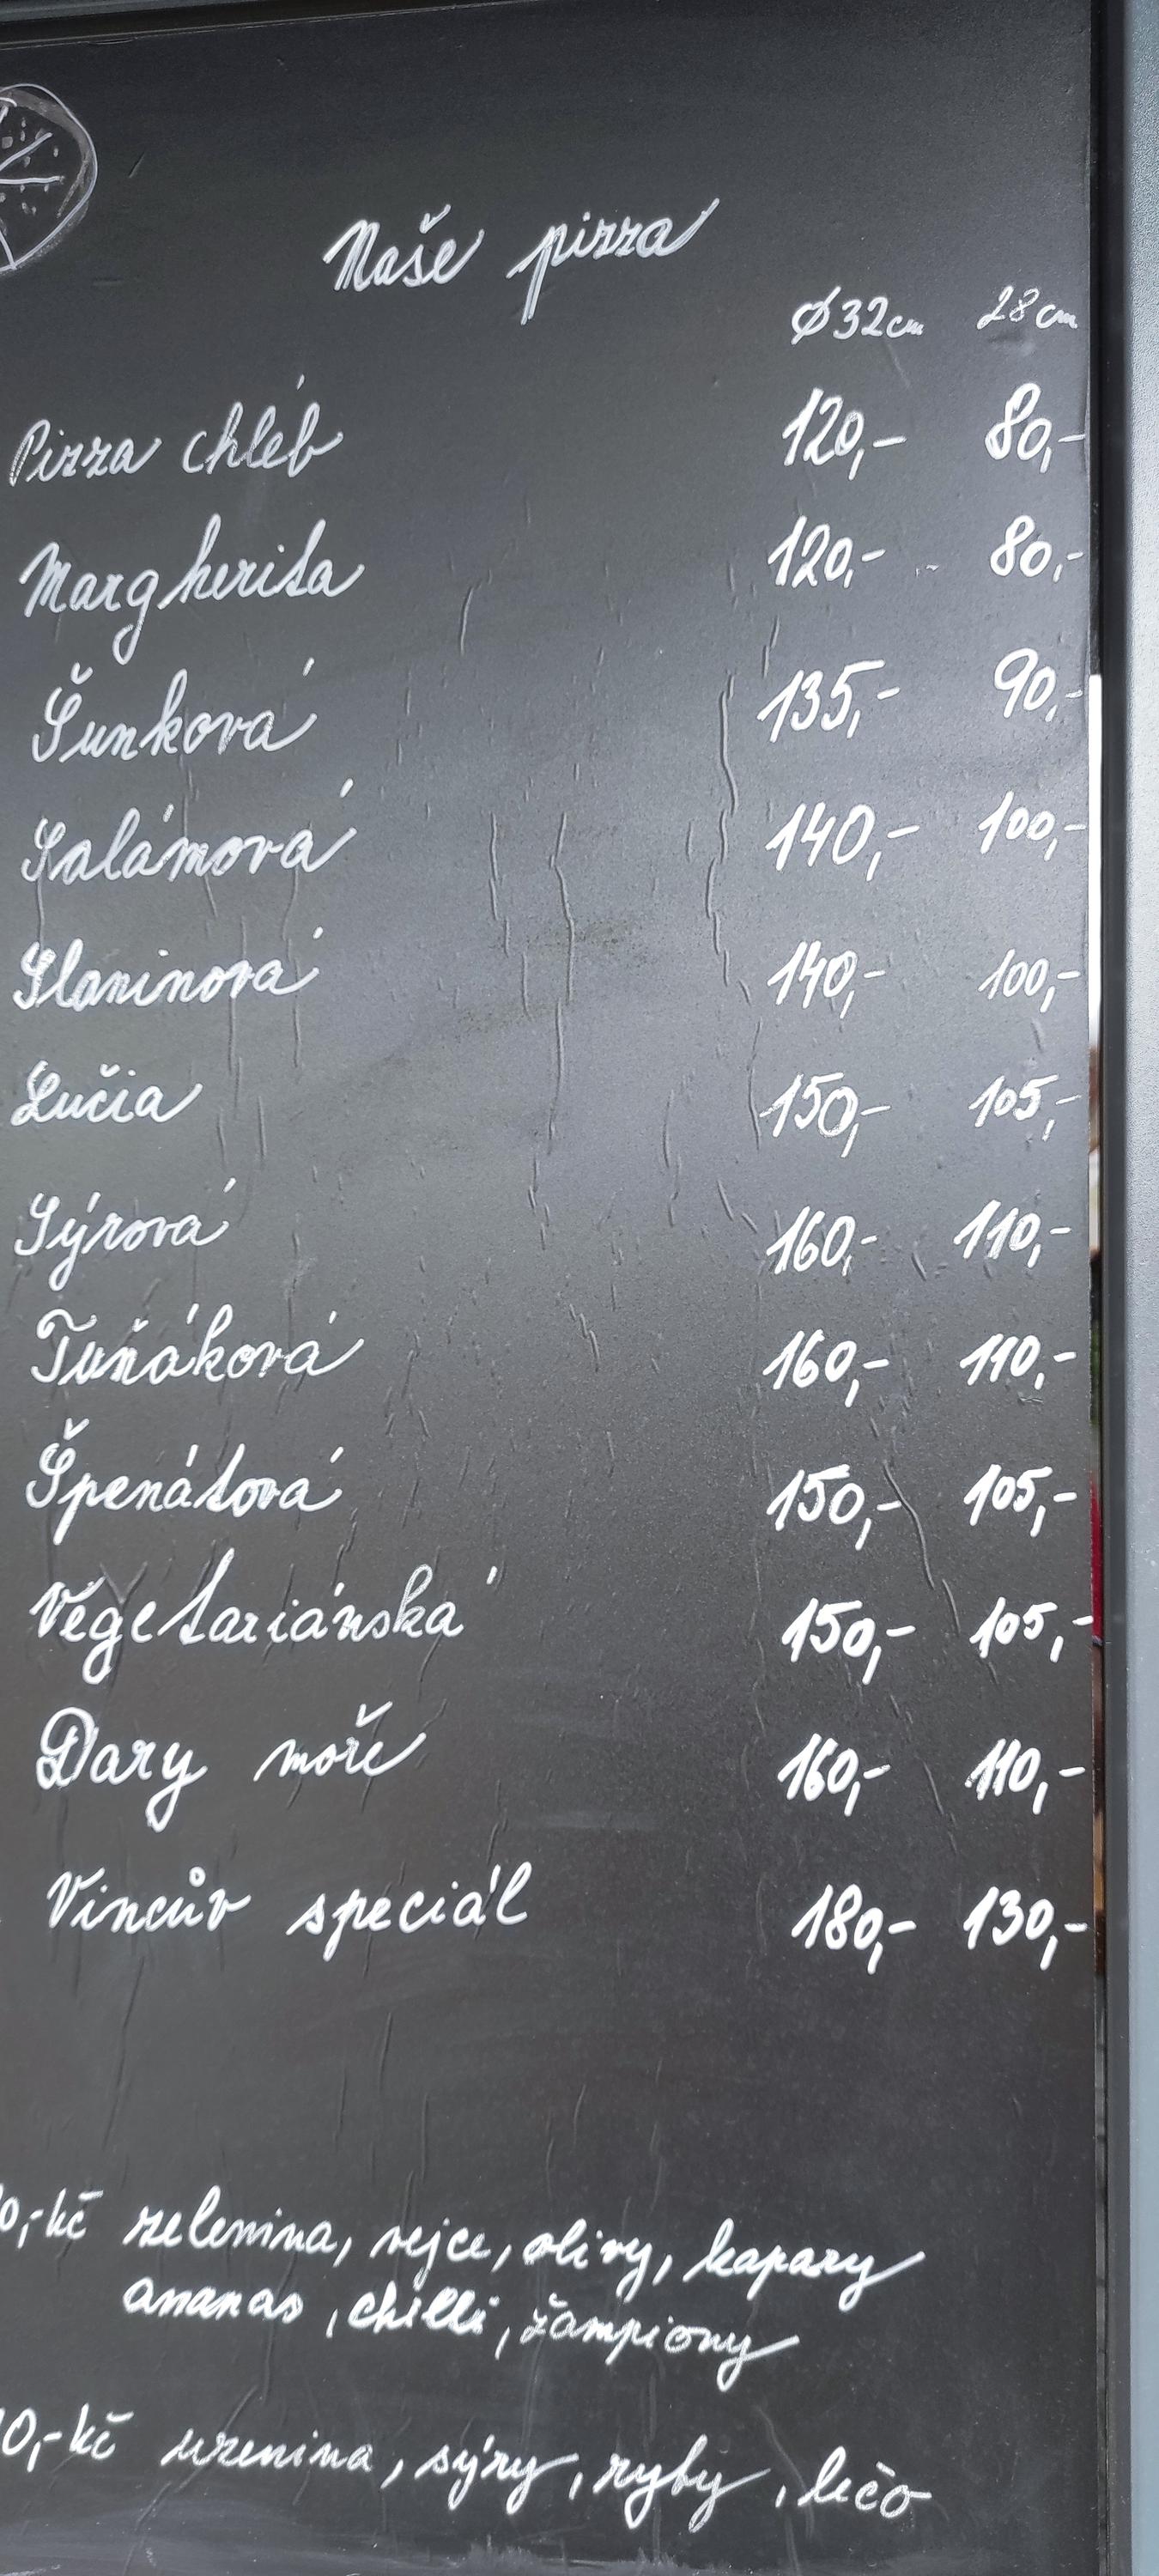 Naše pizza
Ø32cm 28cm
Pizza chléb 120,- 80,-
Margherita 120,- 80,-
Šunková 135,- 90,-
Salámová 140,- 100,-
Slaninová 140,- 100,-
Lučia 150,- 105,-
Sýrová 160,- 110,-
Tuňáková 160,- 110,-
Špenátová 150,- 105,-
Vegetariánská 150,- 105,-
Dary moře 160,- 110,-
Vincův speciál 180,- 130,-
0,-kč zelenina, vejce, olivy, kapary
ananas, chilli, žampiony
0,-kč uzenina, sýry, ryby, lečo